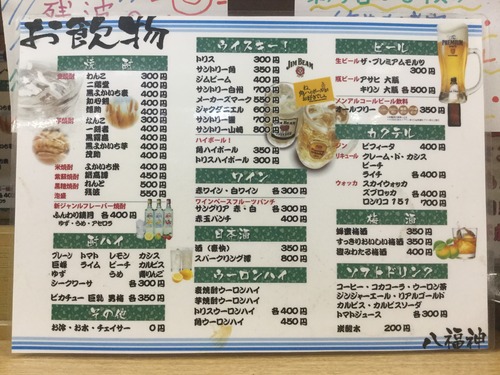 残波
お飲物
焼酎
わんこ 300円
二階堂 400円
黒よかいち麦 400円
加那鶴 400円
隠助 400円
なんこ 300円
一刻者 400円
黒霧島 400円
茂助 400円
米焼酎 よかいち米 400円
れんと 400円
泡盛 残波 550円
新ジャンルフレーバー焼酎
ふんわり鏡月 各400円
ゆず・うめ・アセロラ
酎ハイ
プレーン トマト レモン カシス
巨峰 ライム ピーチ カルピス
ゆず うめ 青りんご
シークワーサ 各300円
ピカチュー 巨乳 男梅 各350円
その他
お冷・お水・チェイサー 0円
ウイスキー!
トリス 300円
サントリー角 350円
ジムビーム 350円
サントリー白州 700円
メーカーズマーク 550円
ジャクダニエル 600円
サントリー響 700円
サントリー山崎 800円
ハイボール!
角ハイボール 各400円
トリスハイボール 各300円
ワイン
赤ワイン・白ワイン 各300円
ワインベースフルーツパンチ
サングリア 赤・白 各300円
赤玉パンチ 400円
日本酒
酒(豪快) 350円
スパークリング澪 各800円
ウーロンハイ
麦焼酎ウーロンハイ 300円
芋焼酎ウーロンハイ 400円
トリスウーロンハイ 各400円
角ウーロンハイ 450円
JIM BEAM
ビール
生ビール ザ・プレミアムモルツ 各300円
瓶ビール アサヒ 大瓶
キリン 大瓶 各500円
ノンアルコールビール飲料
オールフリー 350円
カクテル
ジン ビフィータ 400円
リキュール クレーム・ド・カシス
ピーチ
ライチ 各400円
ウォッカ スカイウォッカ
ズブロッカ 各400円
ロンリコ151 700円
梅酒
蜂蜜梅酒 350円
すっきりおいしい梅酒 350円
極みわたる梅酒 400円
ソフトドリンク
コーヒー・コカコーラ・ウーロン茶
ジンジャーエール・リアルゴールド
カルピス・カルピスソーダ
トマトジュース 各300円
炭酸水 200円
八福神